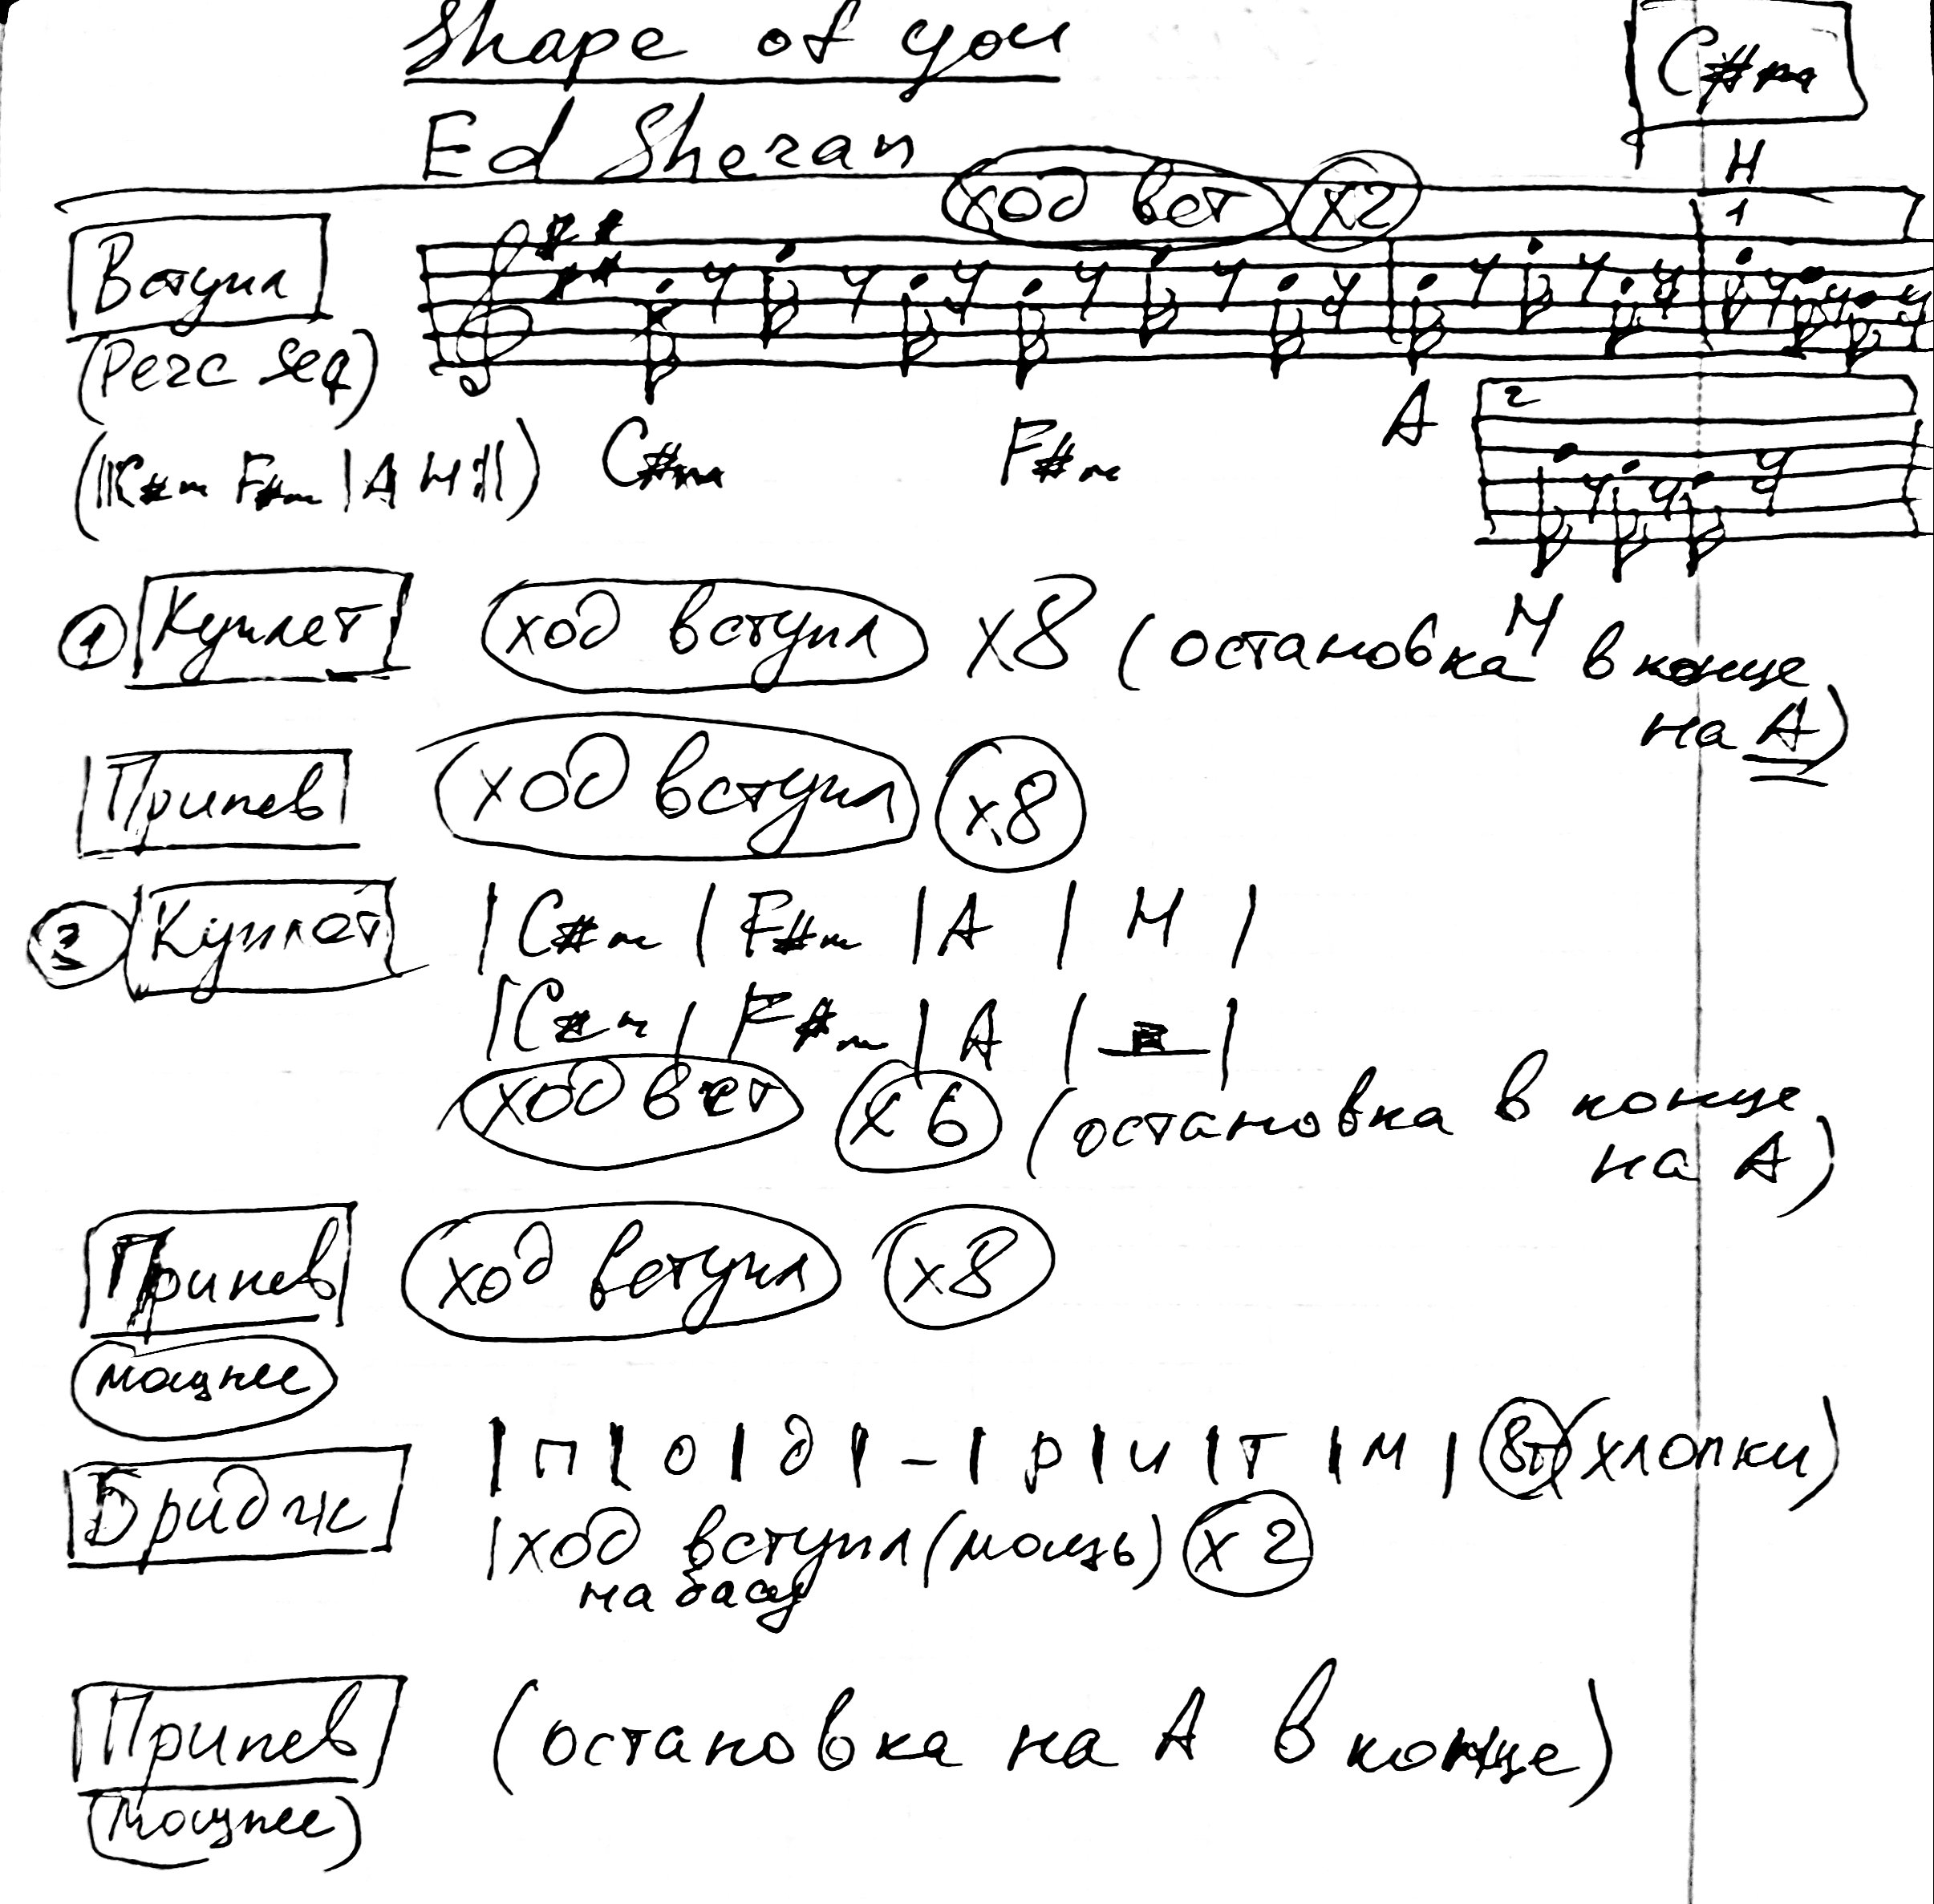 Shape of you
C#m
Ed Sheran
ход вст x2
H
1
Вступл
(Perc Seq)
(||:C#m F#m | A H:||) C#m F#m A
2
H
① Куплет ход вступл x8 (остановка в конце
на A)
Припев ход вступл x8
② Куплет | C#m | F#m | A | H |
| C#m | F#m | A | – |
ход вст x6 (остановка в конце
на A)
Припев ход вступл x8
мощнее
Бридж | п | о | д | – | р | и | т | м | 8т (хлопки)
| ход вступл (мощь) x2
на басу
Припев (остановка на A в конце)
(мощнее)